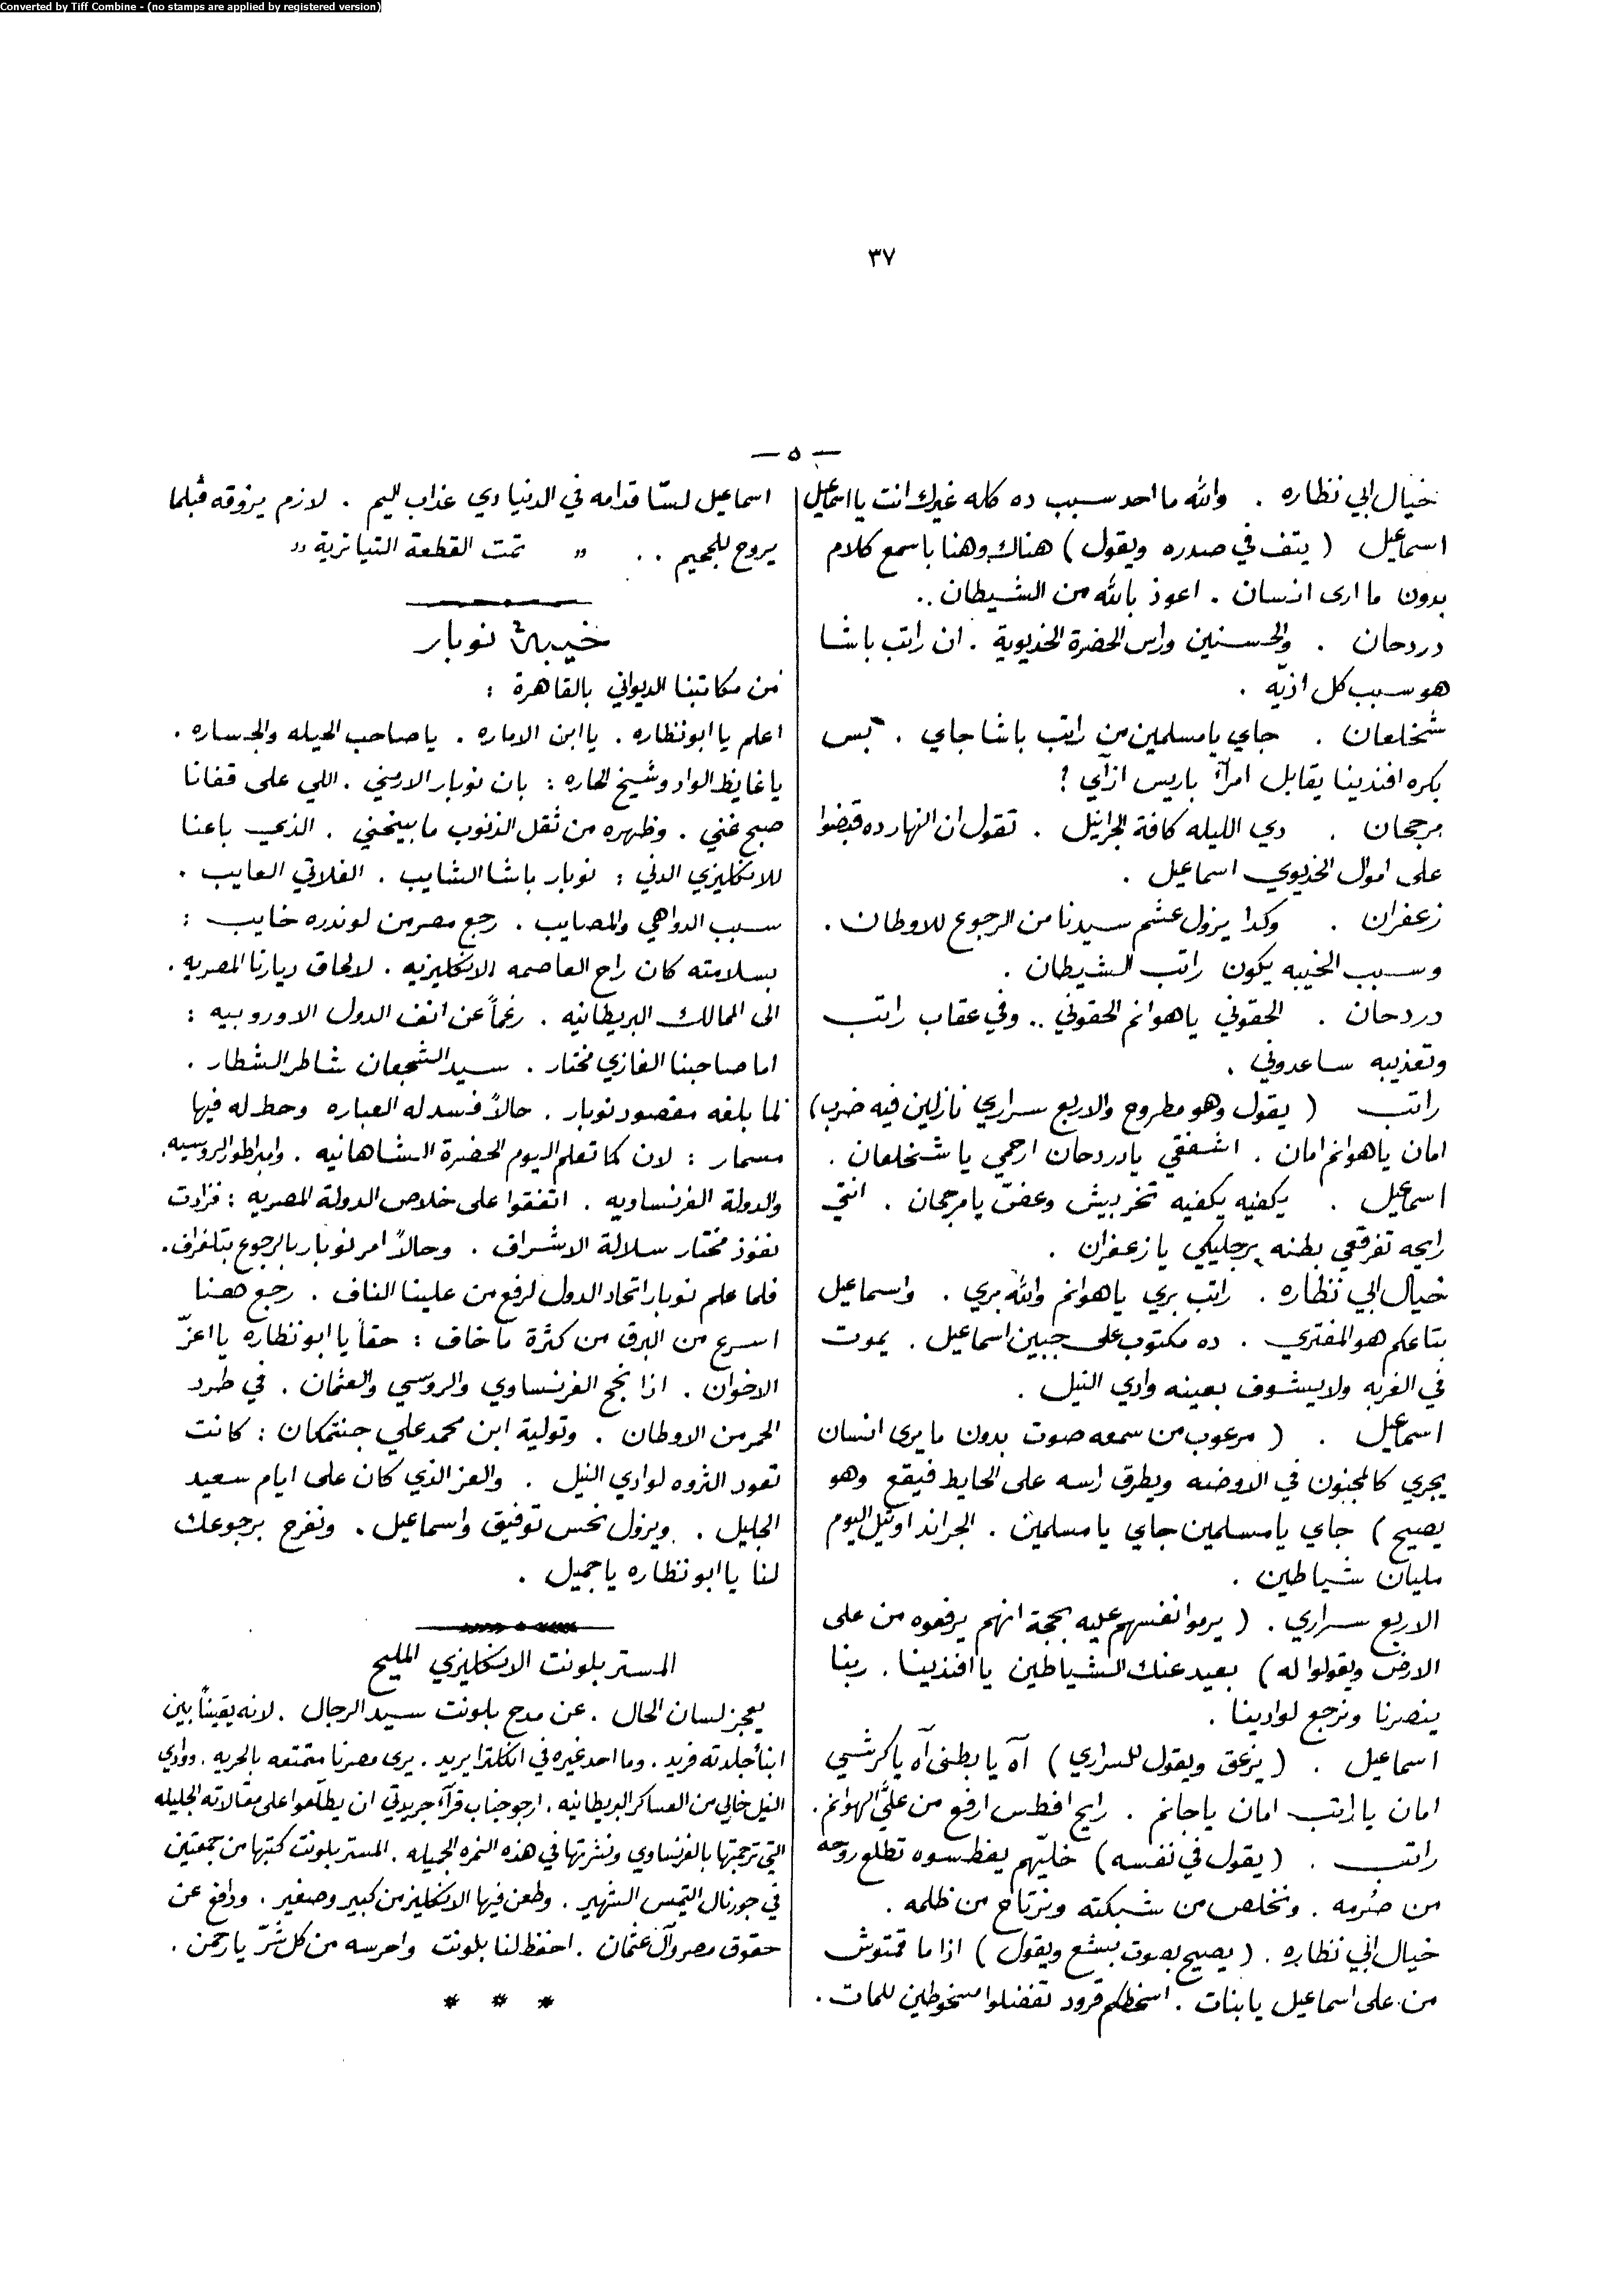 Converted by Tiff Combine - (no stamps are applied by registered version)
٣٧
— ٥ —
خيال ابي نظاره . والله ما احد سبب ده كله غيرك انت يا اسماعيل
اسماعيل ( يتف في صدره ويقول ) هناك وهنا باسمع كلام
بدون ما ارى انسان . اعوذ بالله من الشيطان ..
دردحان . والحسنين وراس الحضرة الخديوية . ان راتب باشا
هو سبب كل اذيّه .
شخلعان . جاي يا مسلمين من راتب باشا جاي . بس
بكره افندينا يقابل امرآء باريس ازآي ؟
مرجحان . دي الليله كافة الجرانيل . تقول ان النهارده قبضوا
على اموال الخديوي اسماعيل .
زعفران . وكدا يزول عشم سيدنا من الرجوع للاوطان .
وسبب الخيبه يكون راتب الشيطان .
دردحان . الحقوني ياهوانم الحقوني .. وفي عقاب راتب
وتعذيبه ساعدوني .
راتب ( يقول وهو مطروح والاربع سراري نازلين فيه ضرب )
امان ياهوانم امان . اشفقي يادردحان ارحمي يا شخلعان .
اسماعيل . يكفيه يكفيه تخربيش وعضّ يا مرجحان . انتي
رايحه تفرقعي بطنه برجليكي يا زعفران .
خيال ابي نظاره . راتب بري ياهوانم والله بري . واسماعيل
بتاعكم هو المفتري . ده مكتوب على جبين اسماعيل . يموت
في الغربه ولا يشوف بعينه وادي النيل .
اسماعيل . ( مرعوب من سمعه صوت بدون ما يرى انسان
يجري كالمجنون في الاوضه ويطرق راسه على الحايط فيقع وهو
يصيح ) جاي يا مسلمين جاي يا مسلمين . الجراند اوتيل اليوم
مليان شياطين .
الاربع سراري . ( يرموا نفسهم عليه بحجة انهم يرفعوه من على
الارض ويقولوا له ) بعيد عنك الشياطين يا افندينا . ربنا
ينصرنا ونرجع لوادينا .
اسماعيل . ( يزعق ويقول للسراري ) آه يا بطنى آه يا كرشي
امان يا راتب امان يا جانم . رايح افطس ارفع من عليَّ الهوانم .
راتب . ( يقول في نفسه ) خليّهم يفطسوه تطلع روحه
من صُرمه . ونخلص من شبكته ونرتاح من ظلمه .
خيال ابي نظاره . ( يصيح بصوت بشع ويقول ) اذا ما قمتوش
من على اسماعيل يا بنات . اسخطكم قرود تفضلوا مسخوطين للمات .
اسماعيل لسّا قدامه في الدنيا دي عذاب اليم . لازم يزوقه قبلما
يروح للجحيم . . " تمت القطعة التياترية "
خيبة نوبار
من مكاتبنا الديواني بالقاهرة :
اعلم يا ابو نظاره . يا ابن الاماره . يا صاحب الحيله والجساره .
يا غايظ الواد وشيخ الحاره : بان نوبار الارمني . اللي على قفانا
صبح غني . وظهره من ثقل الذنوب ما بينحني . الذي باعنا
للانكليزي الدني : نوبار باشا الشايب . الفلاتي العايب .
سبب الدواهي والمصايب . رجع مصر من لوندره خايب :
بسلامته كان راح العاصمه الانكليزيه . لالحاق ديارنا المصريه .
الى الممالك البريطانيه . رغماً عن انف الدول الاوروبيه :
اما صاحبنا الغازي مختار . سيد الشجعان شاطر الشطار .
لما بلغه مقصود نوبار . حالاً فسد له العباره وحط له فيها
مسمار : لان كما تعلم اليوم الحضرة الشاهانيه . وامبراطور الروسيه .
والدولة الفرنساويه . اتفقوا على خلاص الدولة المصريه : فزادت
نفوذ مختار سلالة الاشراف . وحالاً امر نوبار بالرجوع بتلغراف .
فلما علم نوبار اتحاد الدول لرفع من علينا الناف . رجع هنا
اسرع من البرق من كثرة ما خاف : حقاً يا ابو نظاره يا اعزّ
الاخوان . اذا نجح الفرنساوي والروسي والعثمان . في طرد
الحمر من الاوطان . وتولية ابن محمد علي جنتمكان : كانت
تعود الثروه لوادي النيل . والعز الذي كان على ايام سعيد
الجليل . ويزول نحس توفيق واسماعيل . ونفرح برجوعك
لنا يا ابو نظاره يا جميل .
المستر بلونت الانكليزي المليح
يعجز لسان الحال . عن مدح بلونت سيد الرجال . لانه يقيناً بين
ابناء جلدته فريد . وما احد غيره في انكلترا يريد . يرى مصرنا متمتعه بالحريه . ووادي
النيل خالي من العساكر البريطانيه . ارجو جناب قرآء جريدتي ان يطلّعوا على مقالاته الجليله
التي ترجمتها بالفرنساوي ونشرتها في هذه النمره الجميله . المستر بلونت كتبها من جمعتين
في جورنال التيمس الشهير . وطعن فيها الانكليز من كبير وصغير . ودافع عن
حقوق مصر وآل عثمان . احفظ لنا بلونت واحرسه من كل شرّ يا رحمن .
* * *